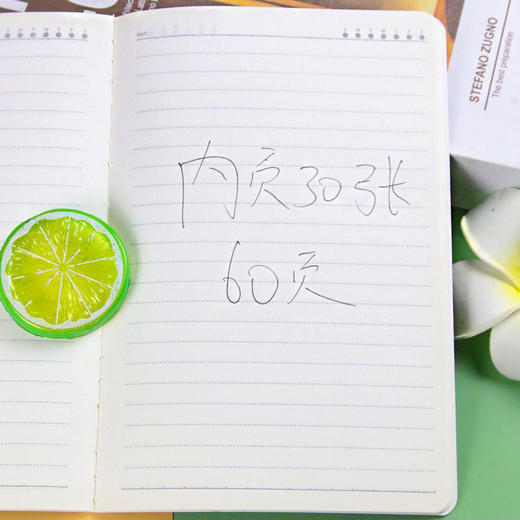 DATE
S M T W T F S
内页30张
60页
STEFANO ZUGNO
The best preparation